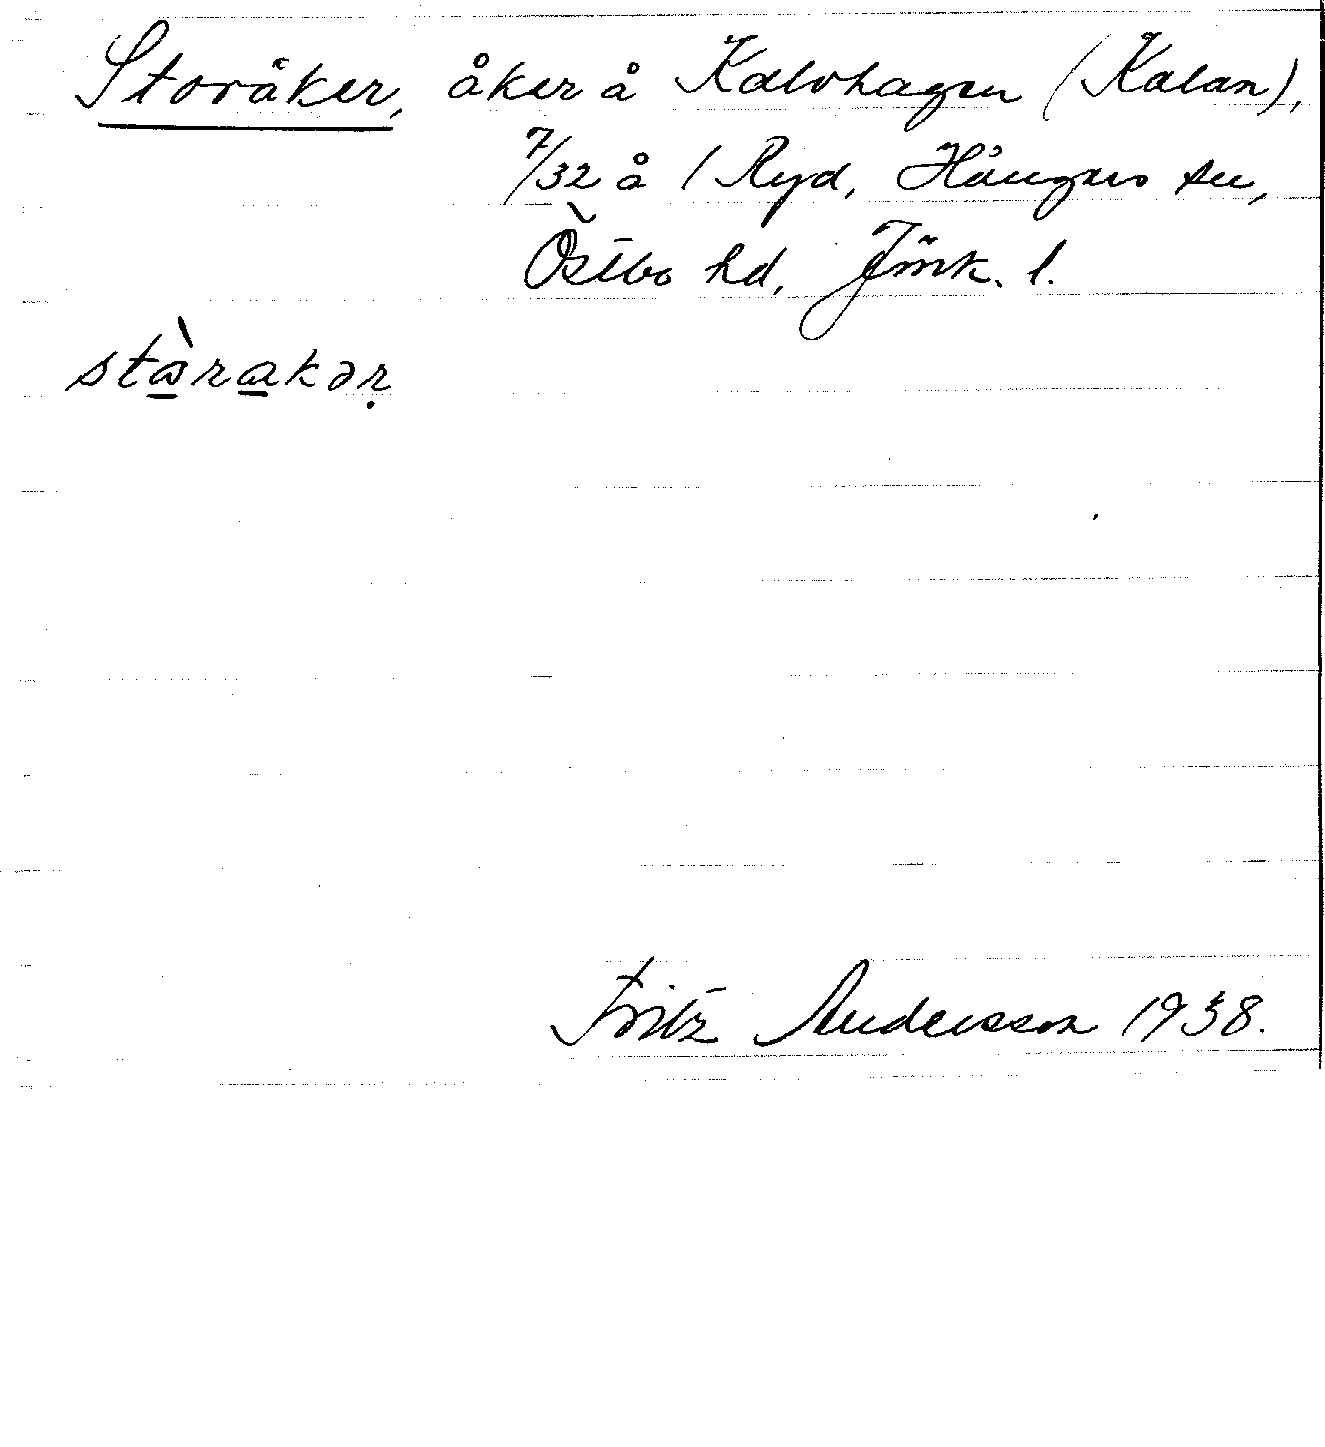 Storåker, åker å Kalvhagen (Kalan),
7/32 å 1 Ryd, Hångers sn,
Östbo hd, Jönk. l.
stàrakər
Fritz Andersson 1938.